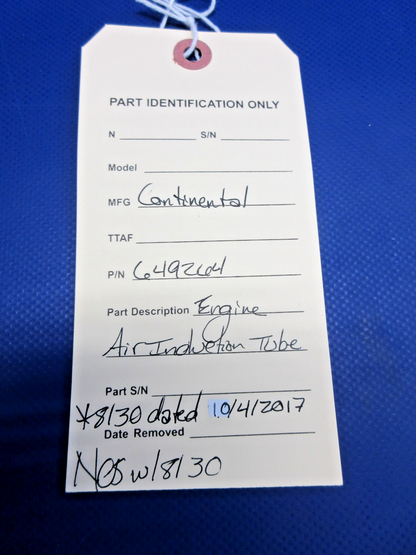 PART IDENTIFICATION ONLY
N S/N
Model
MFG Continental
TTAF
P/N 649264
Part Description Engine
Air Induction Tube
Part S/N
*8130 dated 10/4/2017
Date Removed
NOS w/8130